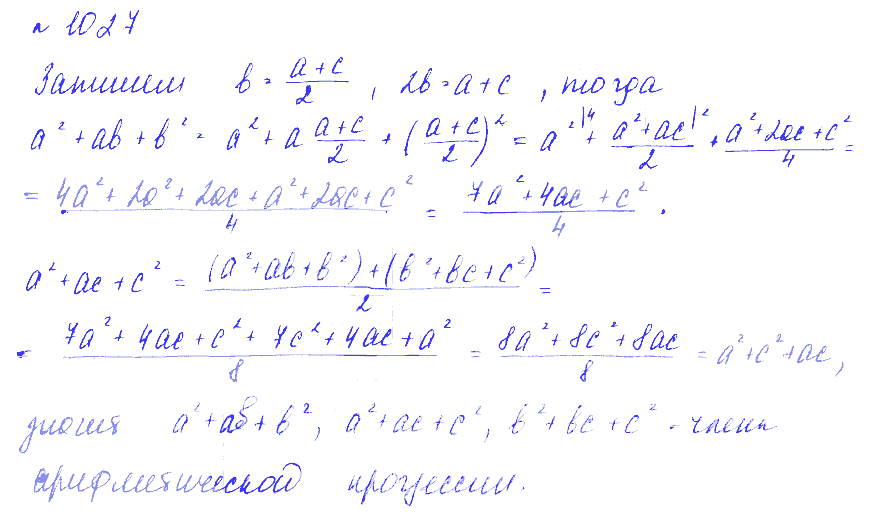 № 1027
Запишем в = (a+c)/2 , 2в = a+c , тогда
a² + aв + в² = a² + a (a+c)/2 + ((a+c)/2)² = a²|⁴ + (a²+ac|²)/2 + (a²+2ac+c²)/4 =
= (4a² + 2a² + 2ac + a² + 2ac + c²)/4 = (7a² + 4ac + c²)/4 .
a² + ac + c² = ((a²+aв+в²)+(в²+вc+c²))/2 =
= (7a² + 4ac + c² + 7c² + 4ac + a²)/8 = (8a² + 8c² + 8ac)/8 = a² + c² + ac ,
значит a² + aв + в² , a² + ac + c² , в² + вc + c² - члены
арифметической прогрессии.